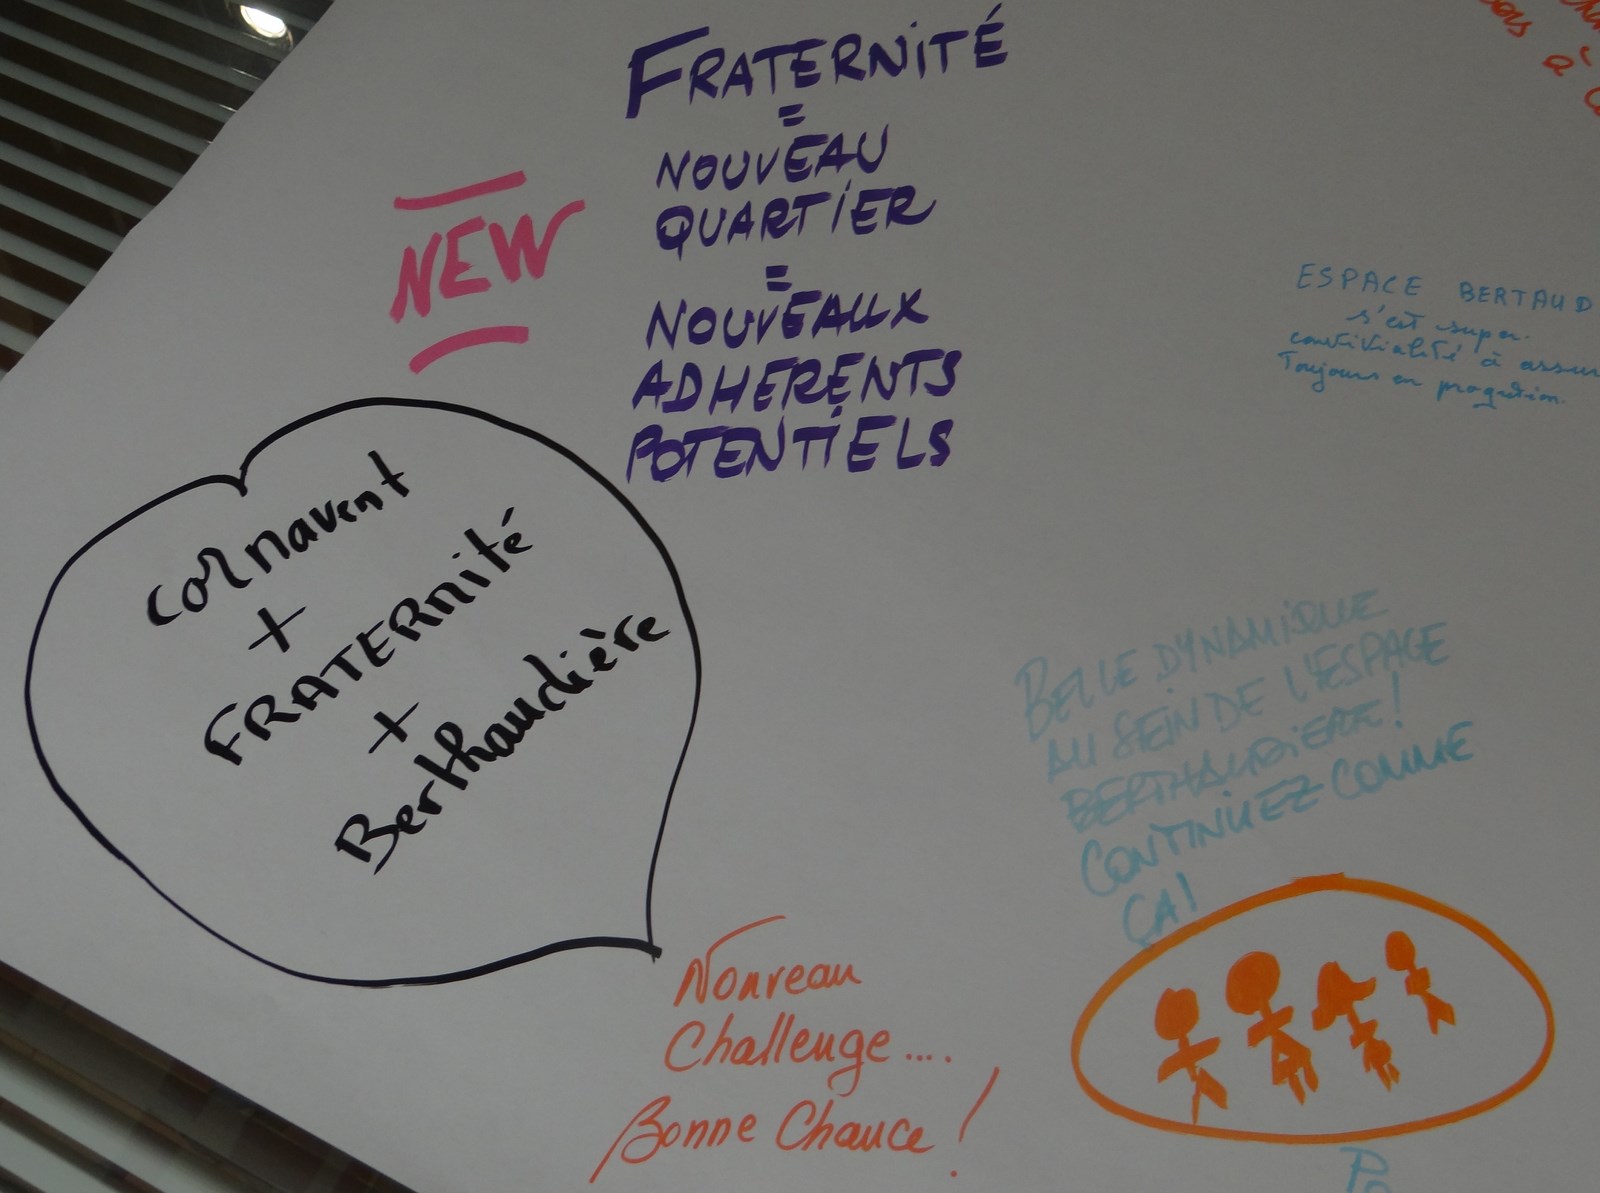 FRATERNITÉ
=
NOUVEAU
QUARTIER
=
NOUVEAUX
ADHERENTS
POTENTIELS
NEW
ESPACE BERTAUD
s'est super.
convivialité à assur
Toujours en progression.
cornavent
+
FRATERnité
+
Berthaudière
BELLE DYNAMIQUE
AU SEIN DE L'ESPACE
BERTHAUDIERE!
CONTINUEZ COMME
ÇA!
Nouveau
Challenge....
Bonne Chance !
à
Po